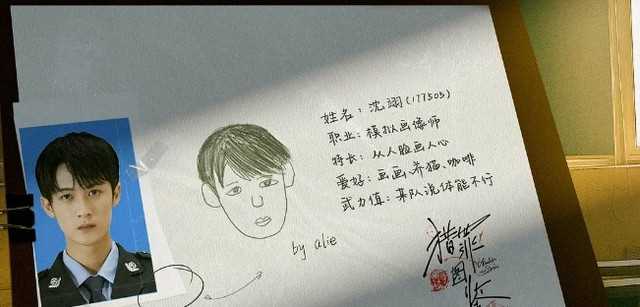 姓名：沈翊(177505)
职业：模拟画像师
特长：从人脸画人心
爱好：画画、养猫、咖啡
武力值：某队说体能不行
by alie
猎罪图鉴